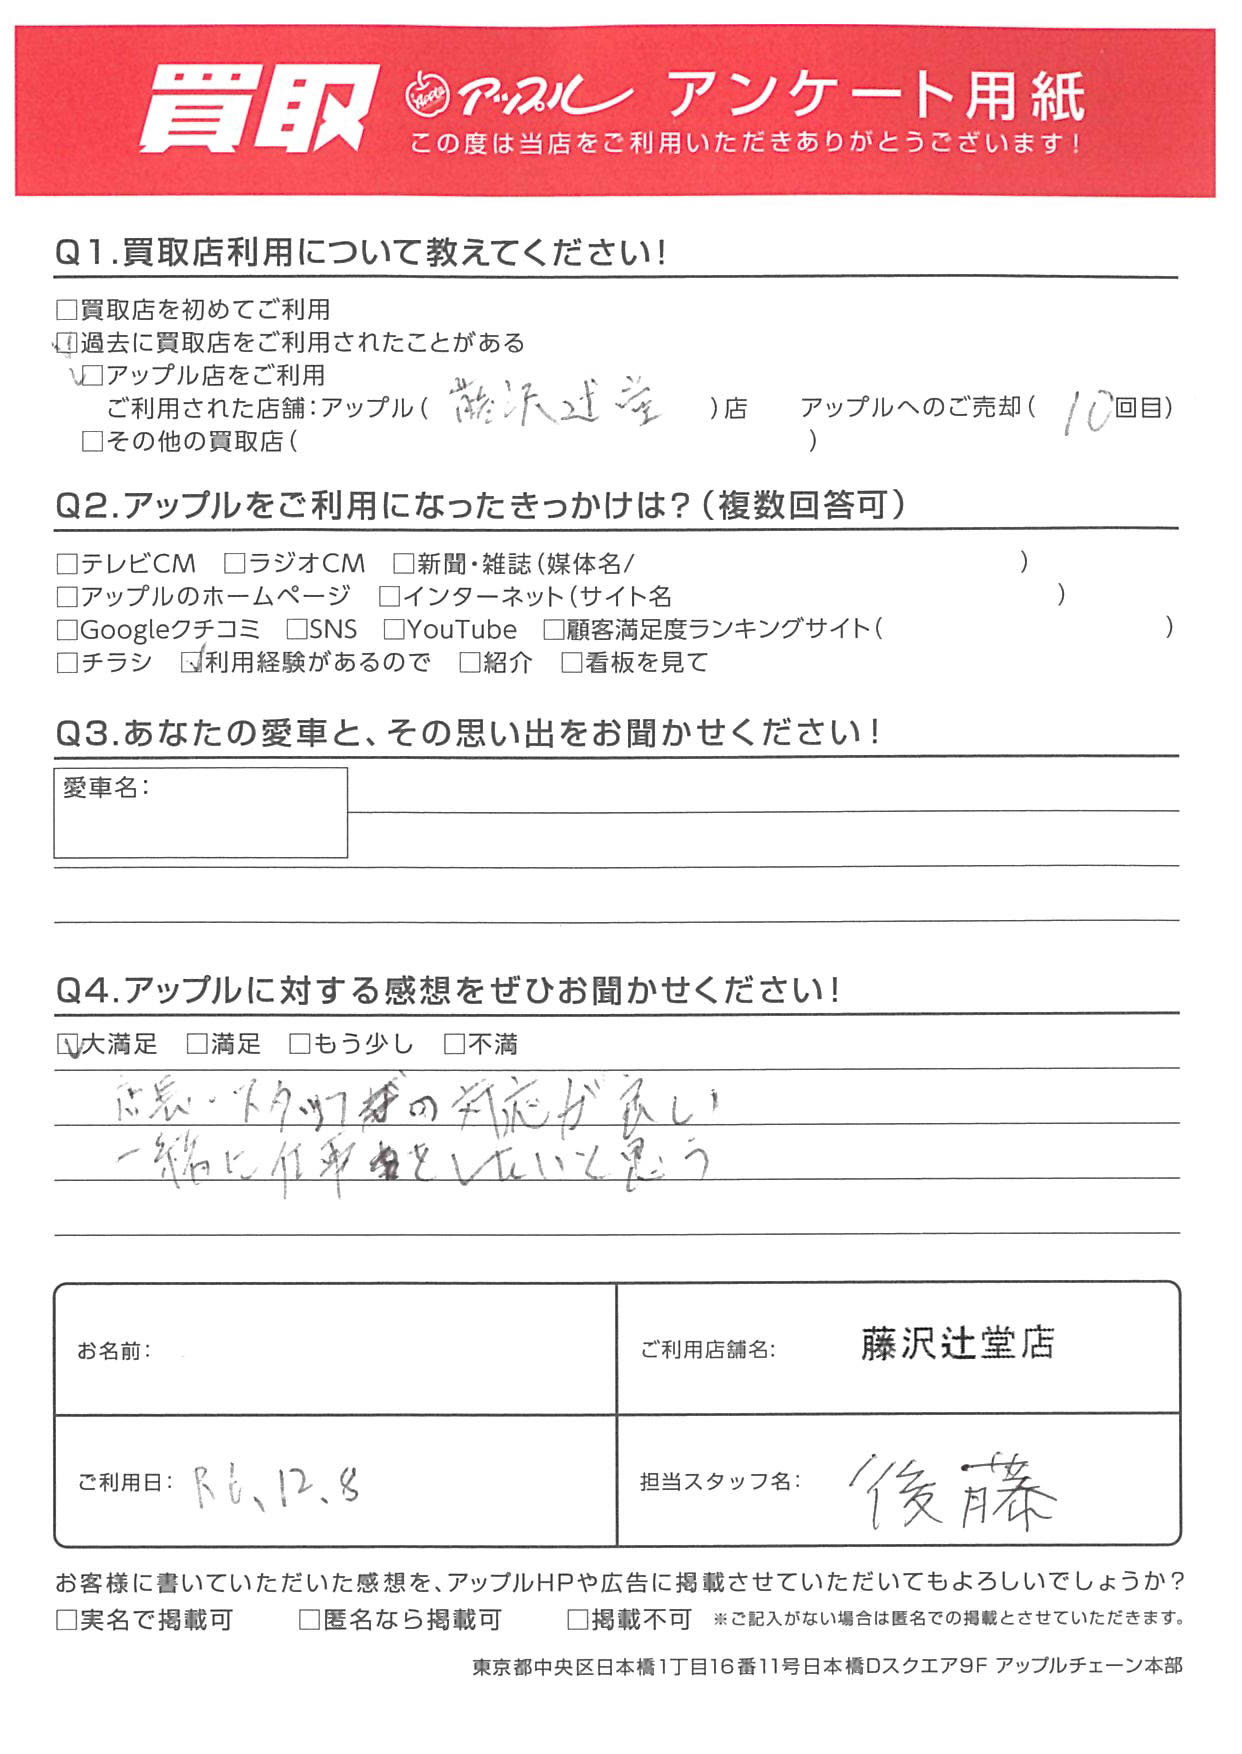 買取 Apple アップル アンケート用紙
この度は当店をご利用いただきありがとうございます!
Q1.買取店利用について教えてください!
□買取店を初めてご利用
☑過去に買取店をご利用されたことがある
☑アップル店をご利用
ご利用された店舗:アップル( 藤沢辻堂 )店 アップルへのご売却( 10回目)
□その他の買取店( )
Q2.アップルをご利用になったきっかけは?(複数回答可)
□テレビCM □ラジオCM □新聞・雑誌(媒体名/ )
□アップルのホームページ □インターネット(サイト名 )
□Googleクチコミ □SNS □YouTube □顧客満足度ランキングサイト( )
□チラシ ☑利用経験があるので □紹介 □看板を見て
Q3.あなたの愛車と、その思い出をお聞かせください!
愛車名:
Q4.アップルに対する感想をぜひお聞かせください!
☑大満足 □満足 □もう少し □不満
店長・スタッフの対応が良い
一緒に仕事をしたいと思う
お名前:
ご利用店舗名: 藤沢辻堂店
ご利用日: R6、12、8
担当スタッフ名: 後藤
お客様に書いていただいた感想を、アップルHPや広告に掲載させていただいてもよろしいでしょうか?
□実名で掲載可 □匿名なら掲載可 □掲載不可 ※ご記入がない場合は匿名での掲載とさせていただきます。
東京都中央区日本橋1丁目16番11号日本橋Dスクエア9F アップルチェーン本部